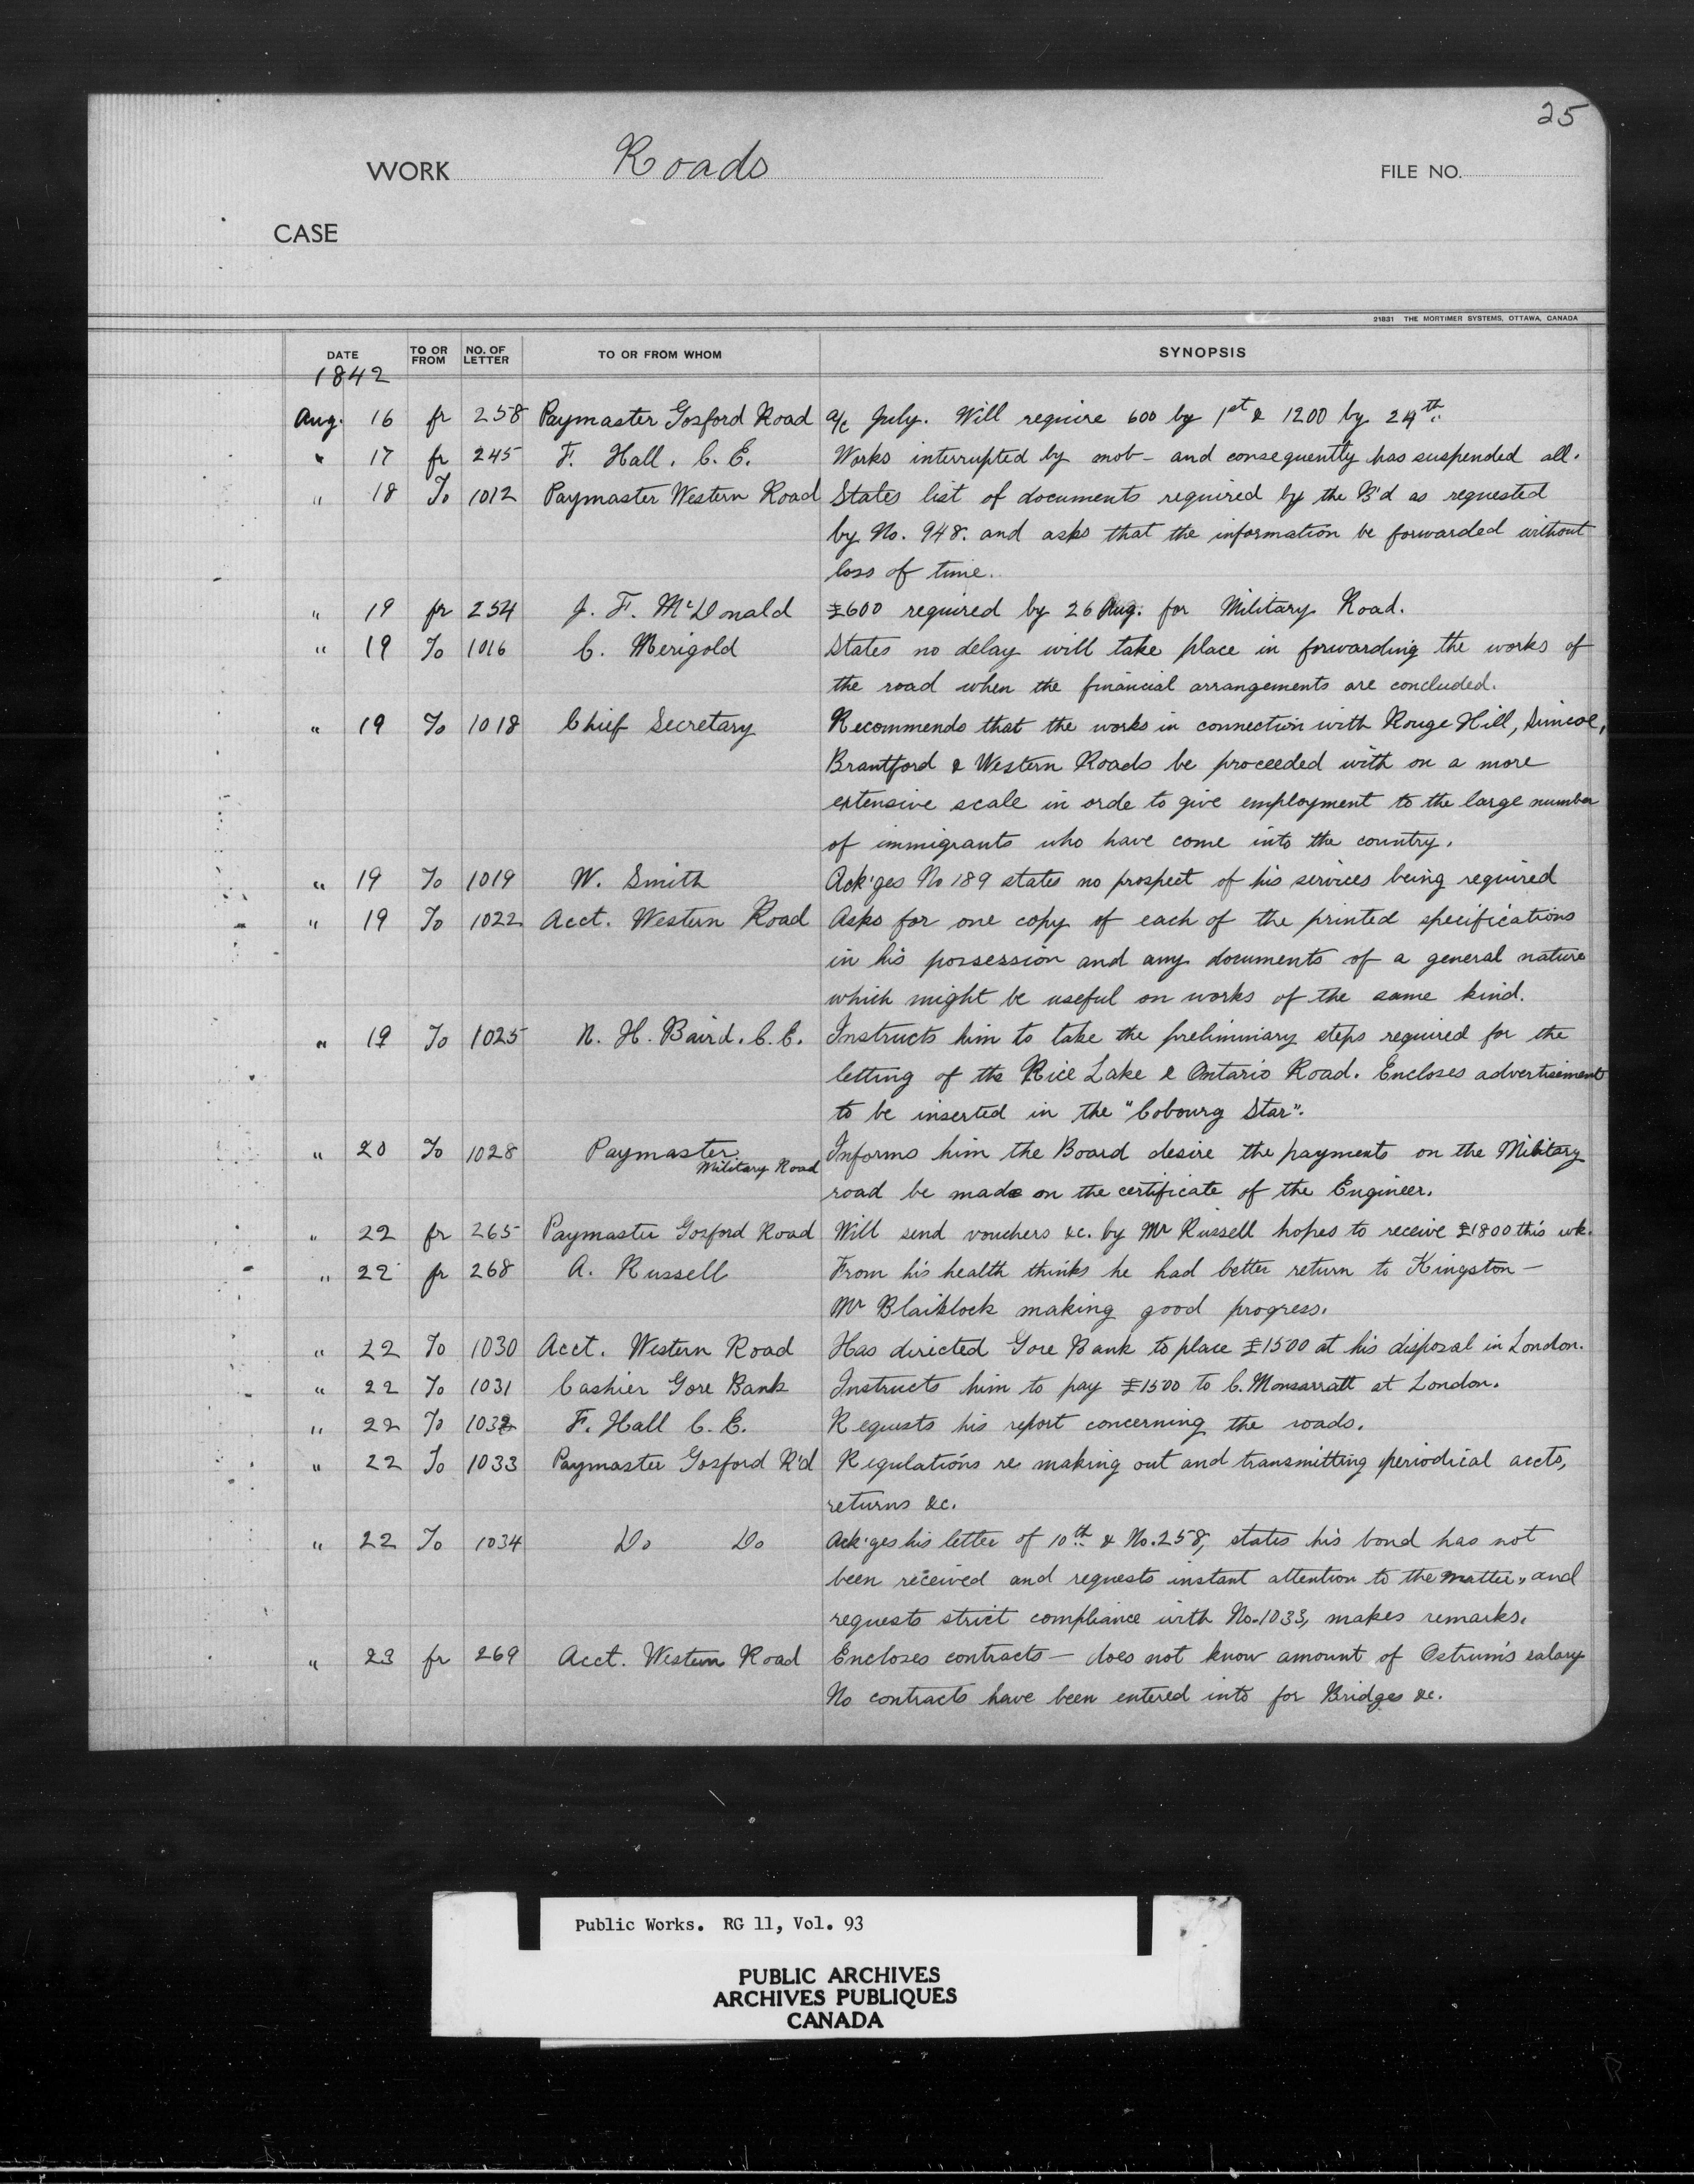 25
WORK Roads FILE NO.
CASE
21831 THE MORTIMER SYSTEMS, OTTAWA, CANADA
DATE TO OR FROM NO. OF LETTER TO OR FROM WHOM SYNOPSIS
1842
Aug. 16 fr 258 Paymaster Gosford Road a/c July. Will require 600 by 1st & 1200 by 24th.
" 17 fr 245 F. Hall. C. E. Works interrupted by mob - and consequently has suspended all.
" 18 To 1012 Paymaster Western Road States list of documents required by the B'd as requested
by No. 948. and asks that the information be forwarded without
loss of time.
" 19 fr 254 J. F. McDonald £600 required by 26 Aug. for Military Road.
" 19 To 1016 C. Merigold States no delay will take place in forwarding the works of
the road when the financial arrangements are concluded.
" 19 To 1018 Chief Secretary Recommends that the works in connection with Rouge Hill, Simcoe,
Brantford & Western Roads be proceeded with on a more
extensive scale in orde to give employment to the large number
of immigrants who have come into the country.
" 19 To 1019 W. Smith Ack'ges No 189 states no prospect of his services being required
" 19 To 1022 Acct. Western Road Asks for one copy of each of the printed specifications
in his possession and any documents of a general nature
which might be useful on works of the same kind.
" 19 To 1025 N. H. Baird. C. E. Instructs him to take the preliminary steps required for the
letting of the Rice Lake & Ontario Road. Encloses advertisement
to be inserted in the "Cobourg Star".
" 20 To 1028 Paymaster Military Road Informs him the Board desire the payments on the Military
road be made on the certificate of the Engineer.
" 22 fr 265 Paymaster Gosford Road Will send vouchers &c. by Mr Russell hopes to receive £1800 this wk.
" 22 fr 268 A. Russell From his health thinks he had better return to Kingston -
Mr Blaiklock making good progress.
" 22 To 1030 Acct. Western Road Has directed Gore Bank to place £1500 at his disposal in London.
" 22 To 1031 Cashier Gore Bank Instructs him to pay £1500 to C. Monsarratt at London.
" 22 To 1032 F. Hall C. E. Requests his report concerning the roads.
" 22 To 1033 Paymaster Gosford R'd Regulations re making out and transmitting periodical accts,
returns &c.
" 22 To 1034 Do Do Ack'ges his letter of 10th & No. 258, states his bond has not
been received and requests instant attention to the matter, and
requests strict compliance with No. 1033, makes remarks.
" 23 fr 269 Acct. Western Road Encloses contracts - does not know amount of Ostrum's salary
No contracts have been entered into for Bridges &c.
Public Works. RG 11, Vol. 93
PUBLIC ARCHIVES
ARCHIVES PUBLIQUES
CANADA